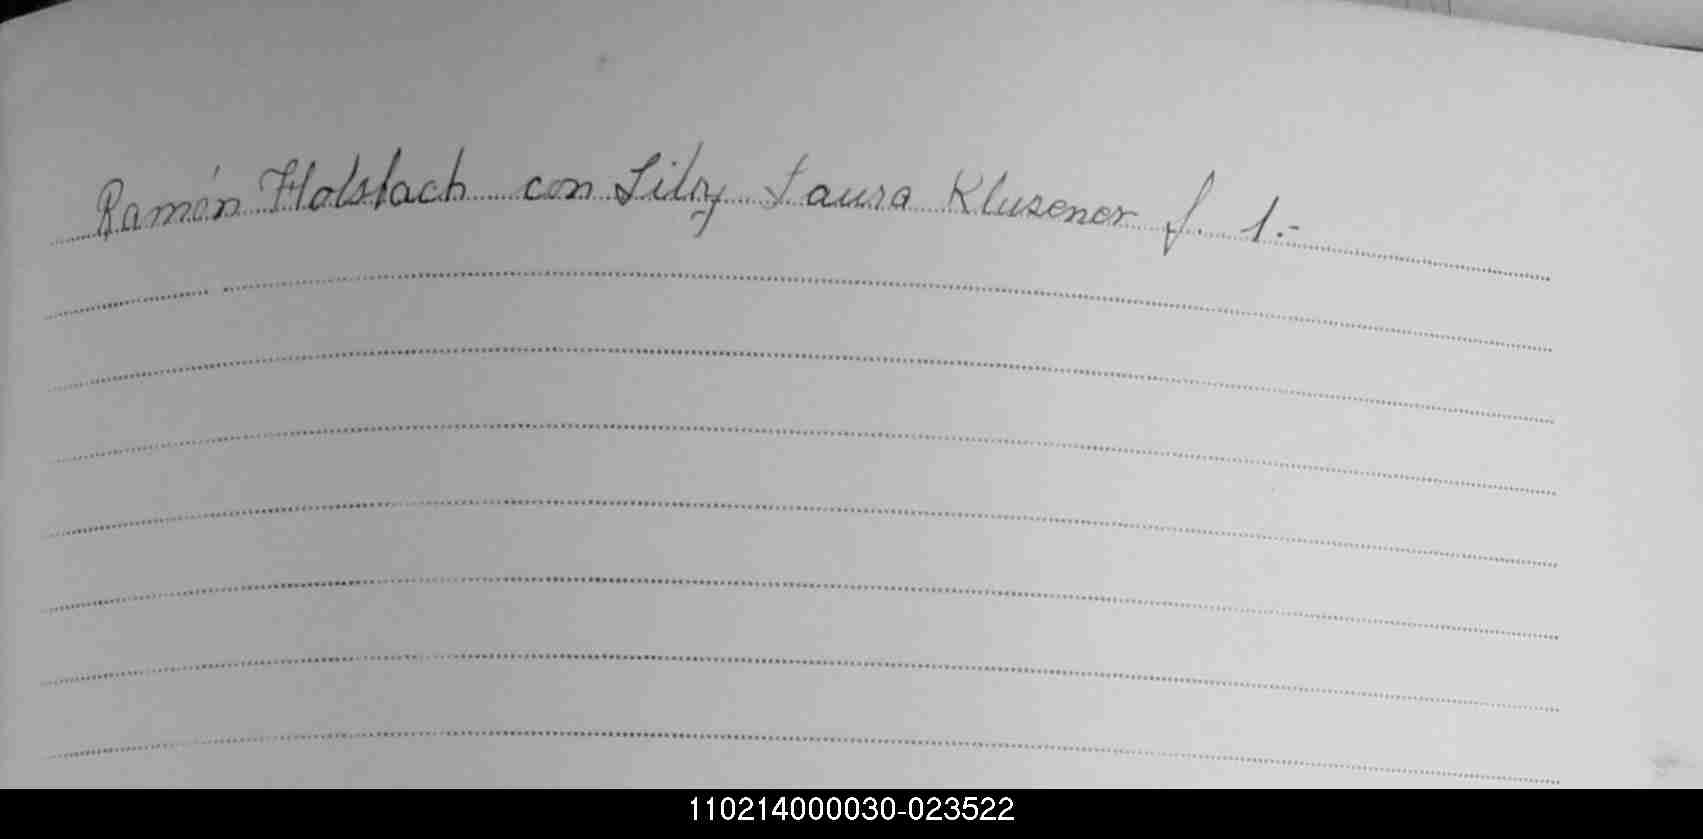 Ramón Holslach con Lily Laura Klusener f. 1.-
110214000030-023522